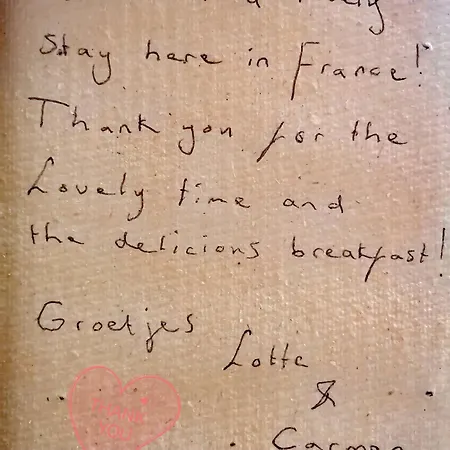 lovely
Stay here in France!
Thank you for the
Lovely time and
the delicions breakfast!
Groetjes
Lotte
&
Carmen
THANK
YOU!